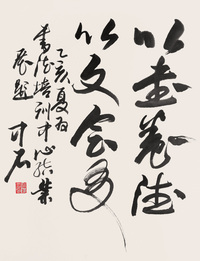 以書养德
以文会友
乙亥夏为
書法培训中心结业
展题